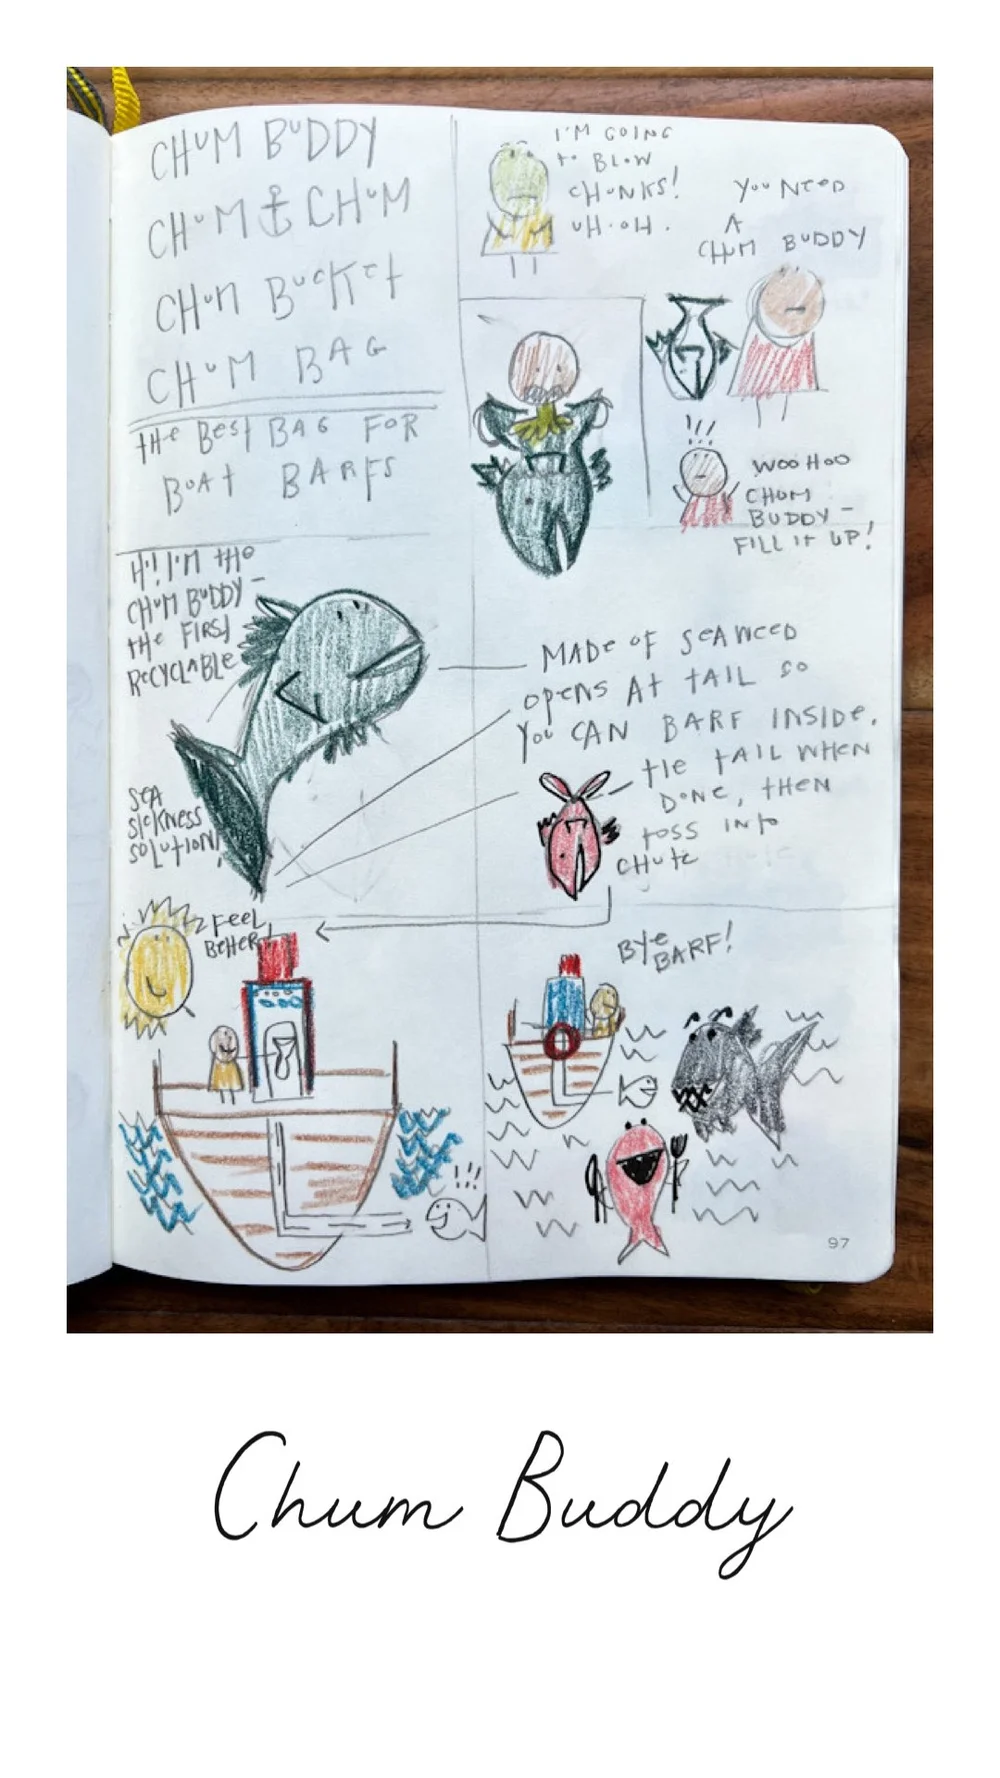 CHUM BUDDY
CHUM CHUM
CHUM BUCKET
CHUM BAG
THE BEST BAG FOR
BOAT BARFS
I'M GOING
TO BLOW
CHUNKS!
UH·OH.
YOU NEED
A
CHUM BUDDY
WOO HOO
CHUM
BUDDY-
FILL IT UP!
HI! I'M THE
CHUM BUDDY-
THE FIRST
RECYCLABLE
SEA
SICKNESS
SOLUTION!
MADE OF SEAWEED
OPENS AT TAIL SO
YOU CAN BARF INSIDE.
TIE TAIL WHEN
DONE, THEN
TOSS INTO
CHUTE
FEEL
BETTER!
BYE
BARF!
97
Chum Buddy